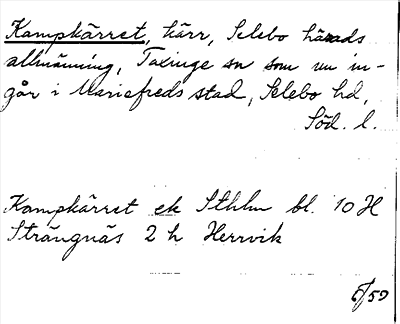 Kampkärret, kärr, Selebo härads
allmänning, Taxinge sn som nu in-
går i Mariefreds stad, Selebo hd,
Söd. l.
Kampkärret ek Sthlm bl. 10 H
Strängnäs 2 h Herrvik
6/59